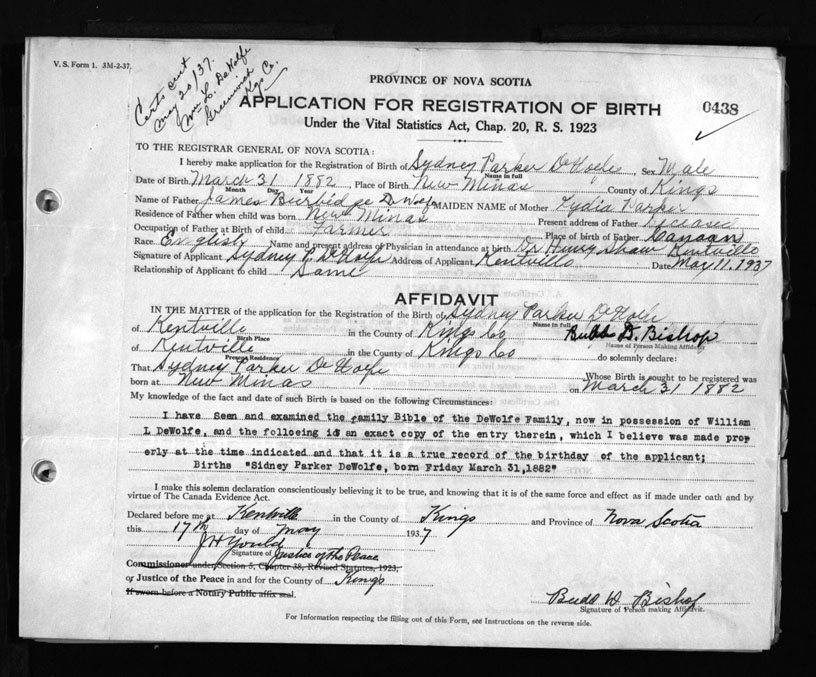 V. S. Form 1. 3M-2-37.
Certs sent
May 20/37.
Wm L. DeWolfe
Greenwich
Kgs Co.
PROVINCE OF NOVA SCOTIA
APPLICATION FOR REGISTRATION OF BIRTH 0438
Under the Vital Statistics Act, Chap. 20, R. S. 1923
TO THE REGISTRAR GENERAL OF NOVA SCOTIA:
I hereby make application for the Registration of Birth of Sydney Parker DeWolfe Sex Male
Name in full
Date of Birth March 31 1882, Place of Birth New Minas County of Kings
Month Day Year
Name of Father James Burbidge DeWolfe MAIDEN NAME of Mother Lydia Parker
Residence of Father when child was born New Minas Present address of Father
Occupation of Father at Birth of child Farmer Place of birth of Father Canaan
Race English Name and present address of Physician in attendance at birth Dr. Henry Shaw Kentville
Signature of Applicant Sydney P. DeWolfe Address of Applicant Kentville Date May 11. 1937
Relationship of Applicant to child Same
AFFIDAVIT
IN THE MATTER of the application for the Registration of the Birth of Sydney Parker DeWolfe
Name in full
of Kentville in the County of Kings Co Budd D. Bishop
Birth Place Name of Person Making Affidavit
of Kentville in the County of Kings Co do solemnly declare:
Present Residence
That Sydney Parker DeWolfe Whose Birth is sought to be registered was
born at New Minas on March 31 1882
My knowledge of the fact and date of such Birth is based on the following Circumstances:
I have Seen and examined the family Bible of the DeWolfe Family, now in possession of William
L DeWolfe, and the folloeing is an exact copy of the entry therein, which I believe was made prop
erly at the time indicated and that it is a true record of the birthday of the applicant;
Births "Sidney Parker DeWolfe, born Friday March 31,1882"
I make this solemn declaration conscientiously believing it to be true, and knowing that it is of the same force and effect as if made under oath and by
virtue of The Canada Evidence Act.
Declared before me at Kentville in the County of Kings and Province of Nova Scotia
this 17th day of May 1937
J H Yould
Signature of Justice of the Peace
Commissioner under Section 5, Chapter 38, Revised Statutes, 1923,
or Justice of the Peace in and for the County of Kings
If sworn before a Notary Public affix seal.
Budd D Bishop
Signature of Person making Affidavit.
For Information respecting the filling out of this Form, see Instructions on the reverse side.